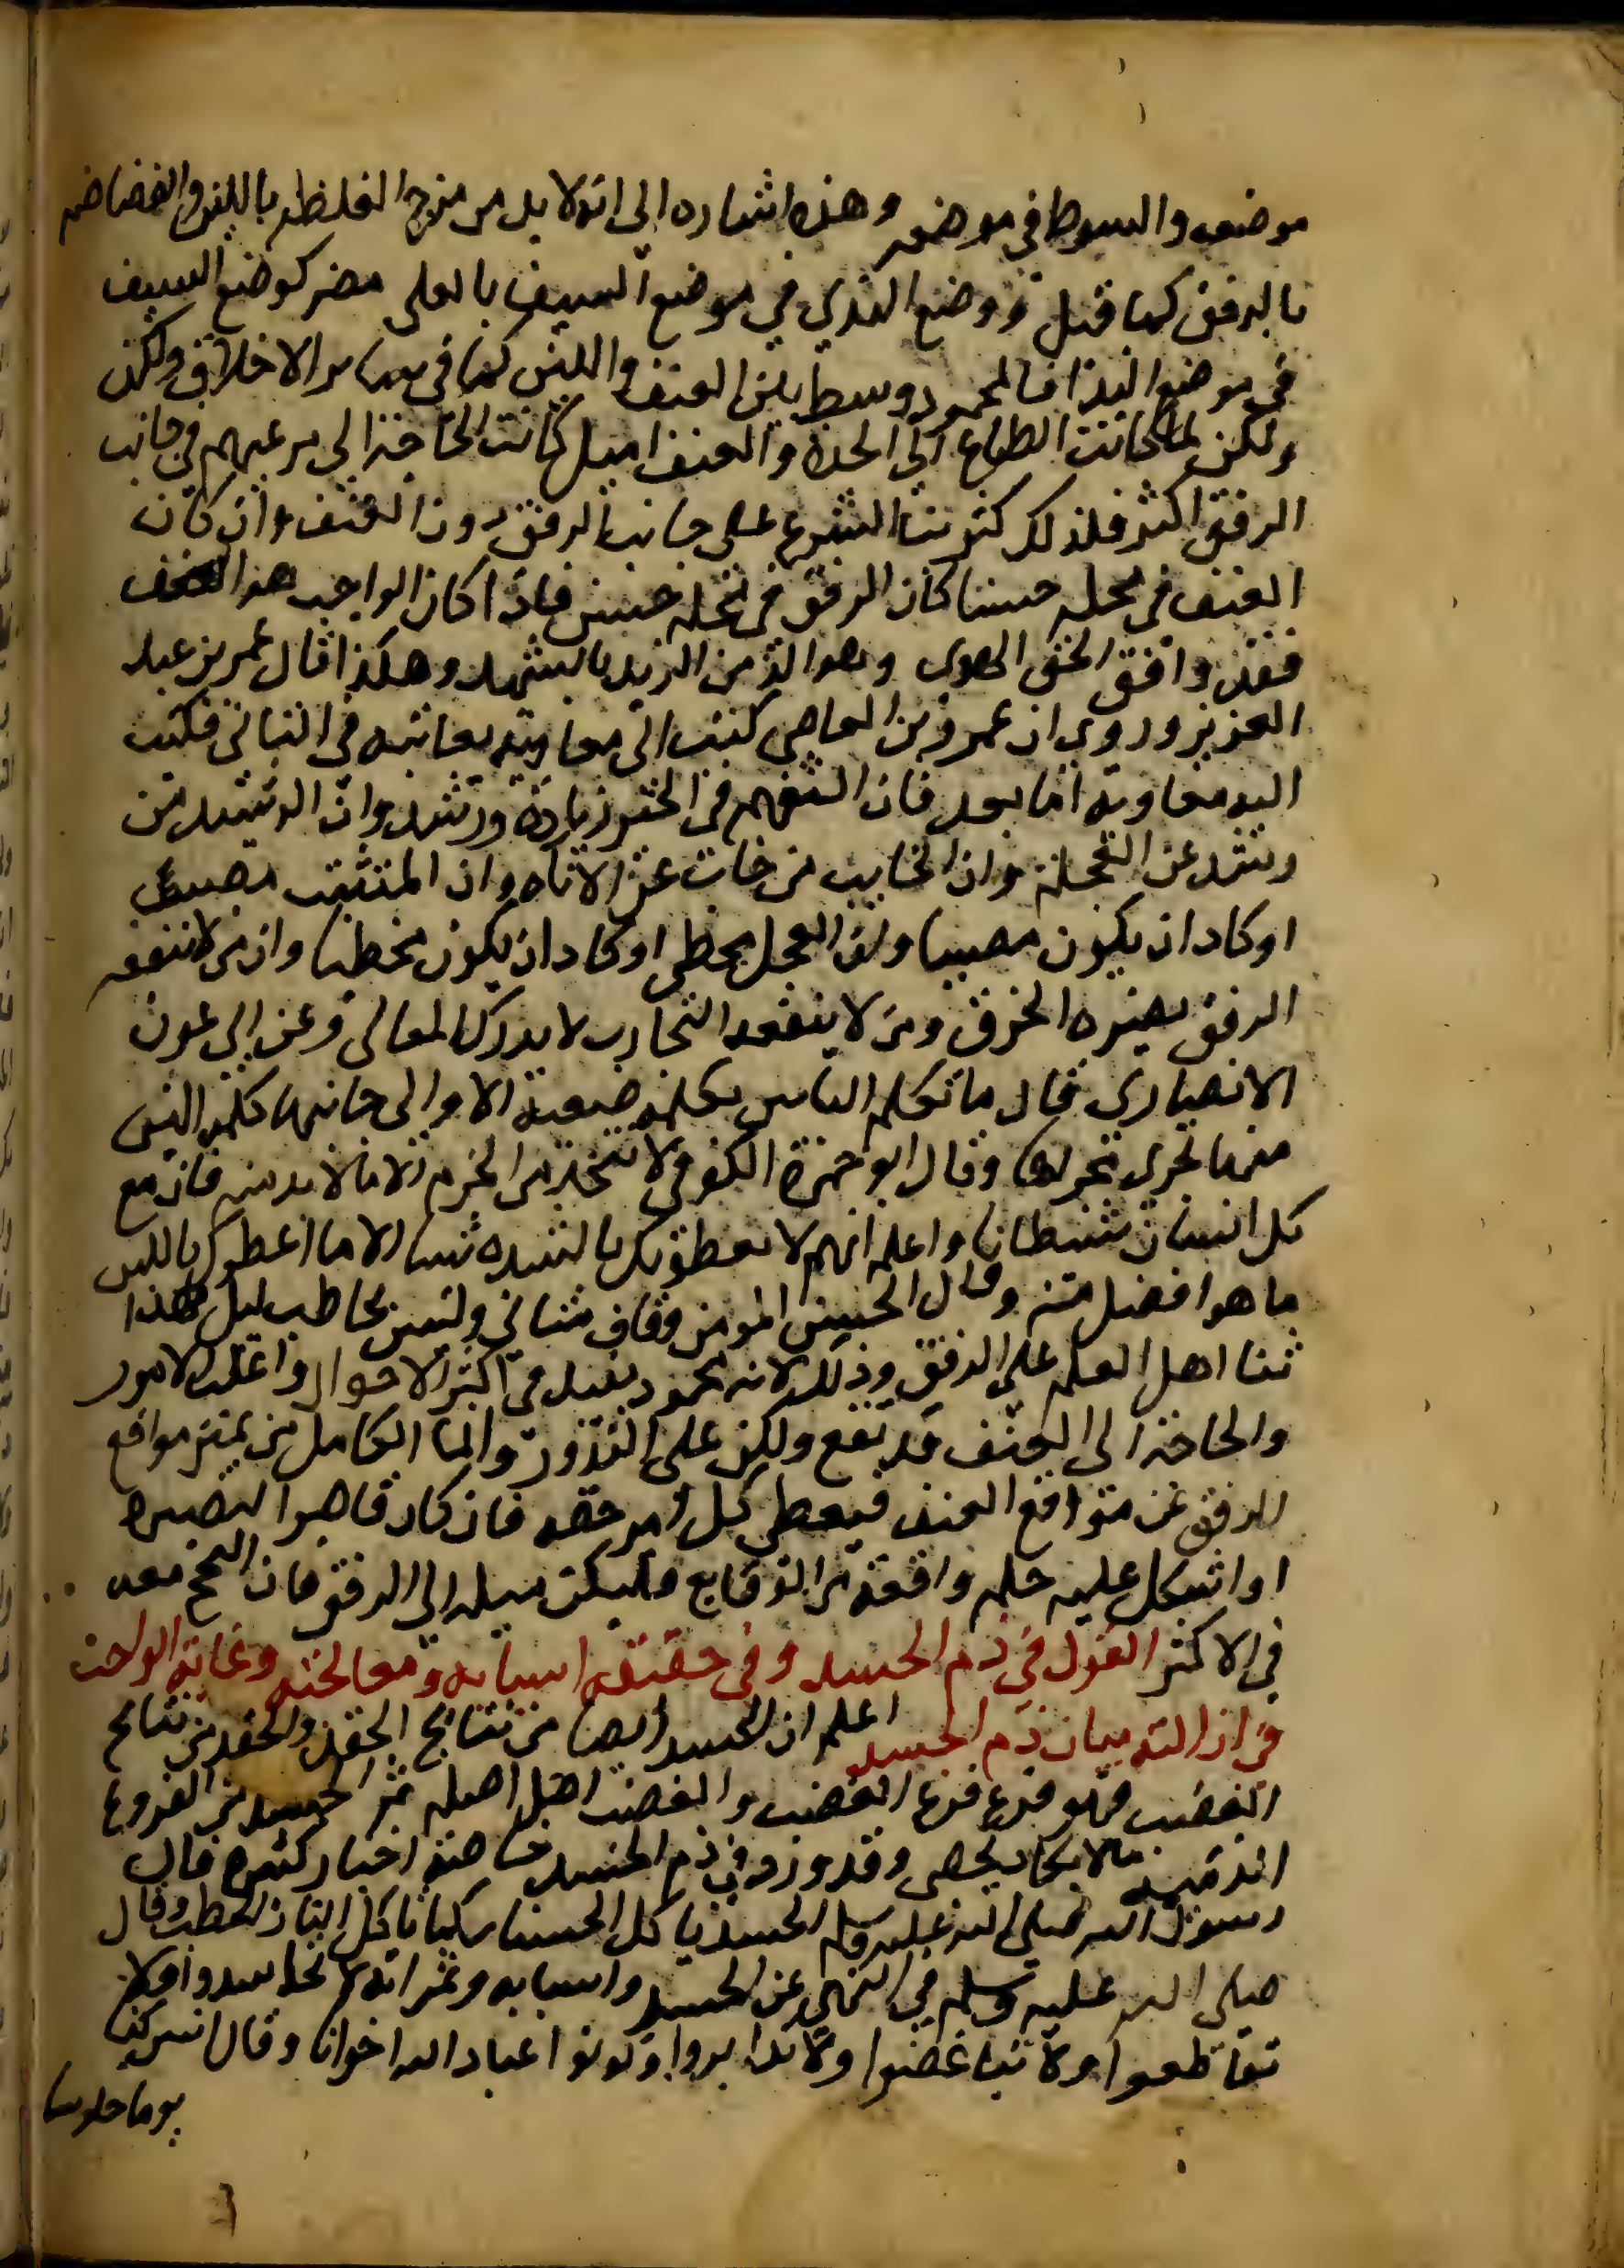 موضعه والسوط في موضعه وهذه اشاره الى انه لا بد من مزج الغلظه باللين والفضاضه
بالرفق كما قيل ووضع الندى في موضع السيف بالعلى مضر كوضع السيف
في موضع الندا فالمحمود وسط بين العنف واللين كما في ساير الاخلاق ولكن
ولكن لما كانت الطباع الى الحدة والعنف اميل كانت الحاجة الى ترغيبهم في جانب
الرفق اكثر فلذلك كثر ثنا الشرع على جانب الرفق دون العنف وان كان
العنف في محله حسنا كما ان الرفق في محله حسن فاذا كان الواجب هو العنف
فقد وافق الحق الهوى وهو الذ من الزبد بالشهد وهكذا قال عمر بن عبد
العزيز وروي ان عمرو بن العاص كتب الى معاوية يعاتبه في التاني فكتب
اليه معاوية اما بعد فان التفهم في الخير زيادة ورشد وان الرشيد من
رشد عن العجلة وان الخايب من خاب عن الاناه وان المتثبت مصيب
او كاد ان يكون مصيبا وان العجل مخطي او كاد ان يكون مخطيا وان من لا ينفعه
الرفق يضره الخرق ومن لا ينفعه التجارب لا يدرك المعالي وعن ابي عون
الانصاري قال ما تكلم الناس بكلمة صعبة الا والى جانبها كلمة الين
منها تجري مجراها وقال ابو حمزة الكوفي لا تتخذ من الخدم الا ما لا بد منه فان مع
كل انسان شيطانا واعلم انهم لا يعطونك بالشده شيا الا ما اعطوك باللين
ما هو افضل منه وقال الحسن المومن وقاف متاني وليس بحاطب ليل فهذا
ثنا اهل العلم على الرفق وذلك لانه محمود يفيد في اكثر الاحوال واغلب الامور
والحاجة الى العنف قد تقع ولكن على الندور وانما الكامل من يميز مواقع
الرفق عن مواقع العنف فيعطي كل امر حقه فان كان قاصر البصيره
او اشكل عليه حكم واقعة من الوقايع فليكن ميله الى الرفق فان النجح معه
في الاكثر القول في ذم الحسد وفي حقيقته اسبابه ومعالجته وغاية الواجب
في ازالته بيان ذم الحسد اعلم ان الحسد ايضا من نتايج الحقد والحقد من نتايج
الغضب فهو فرع فرع الغضب والغضب اصل اصله ثم الحسد من الفروع
الذميمة ما لا يكاد يحصى وقد ورد في ذم الحسد خاصة اخبار كثيره قال
رسول الله صلى الله عليه وسلم الحسد ياكل الحسنات كما تاكل النار الحطب وقال
صلى الله عليه وسلم في النهي عن الحسد واسبابه وثمراته لا تحاسدوا ولا
تقاطعوا ولا تباغضوا ولا تدابروا وكونوا عباد الله اخوانا وقال انس كنا
يوما جلوسا